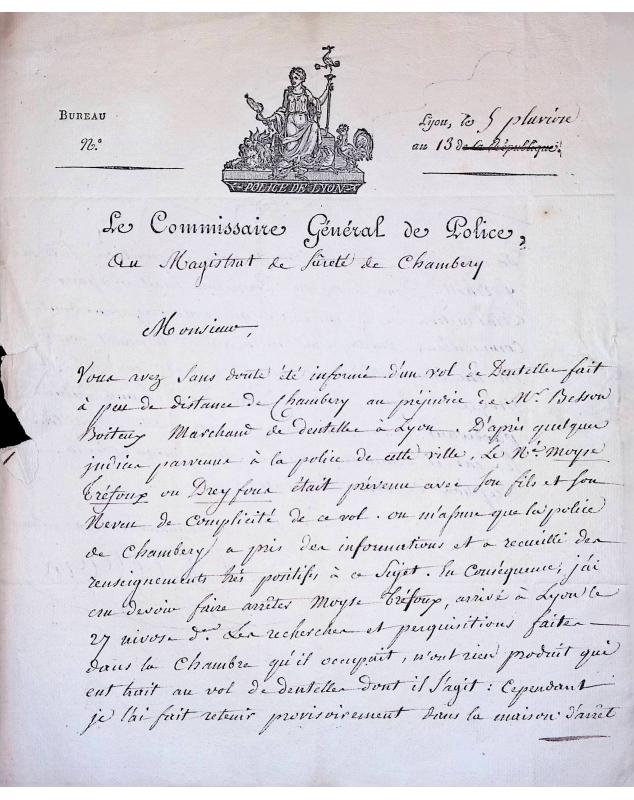 BUREAU
N.º
POLICE DE LYON
Lyon, le 5 pluviose
an 13 de la République.
Le Commissaire Général de Police,
Au Magistrat de Sûreté de Chambery
Monsieur,
Vous avez Sans doute été informé d'un vol de Dentelles fait
à peu de distance de Chambery au préjudice de Mr. Besson
Boiteux Marchand de dentelles à Lyon. D'après quelques
indices parvenus à la police de cette ville, Le Né. Moyse
Tréfoux ou Dreyfous était prévenu avec son fils et son
Neveu de Complicité de ce vol. on m'assure que la police
de Chambery a pris des informations et a recueilli des
renseignements très positifs à ce Sujet. En Conséquence, j'ai
cru devoir faire arrêter Moyse Tréfoux, arrivé à Lyon le
27 nivose dr. Les recherches et perquisitions faites
dans la Chambre qu'il occupait, n'ont rien produit qui
eut trait au vol de dentelles dont il S'agit: Cependant
je l'ai fait retenir provisoirement dans la maison d'arrêt